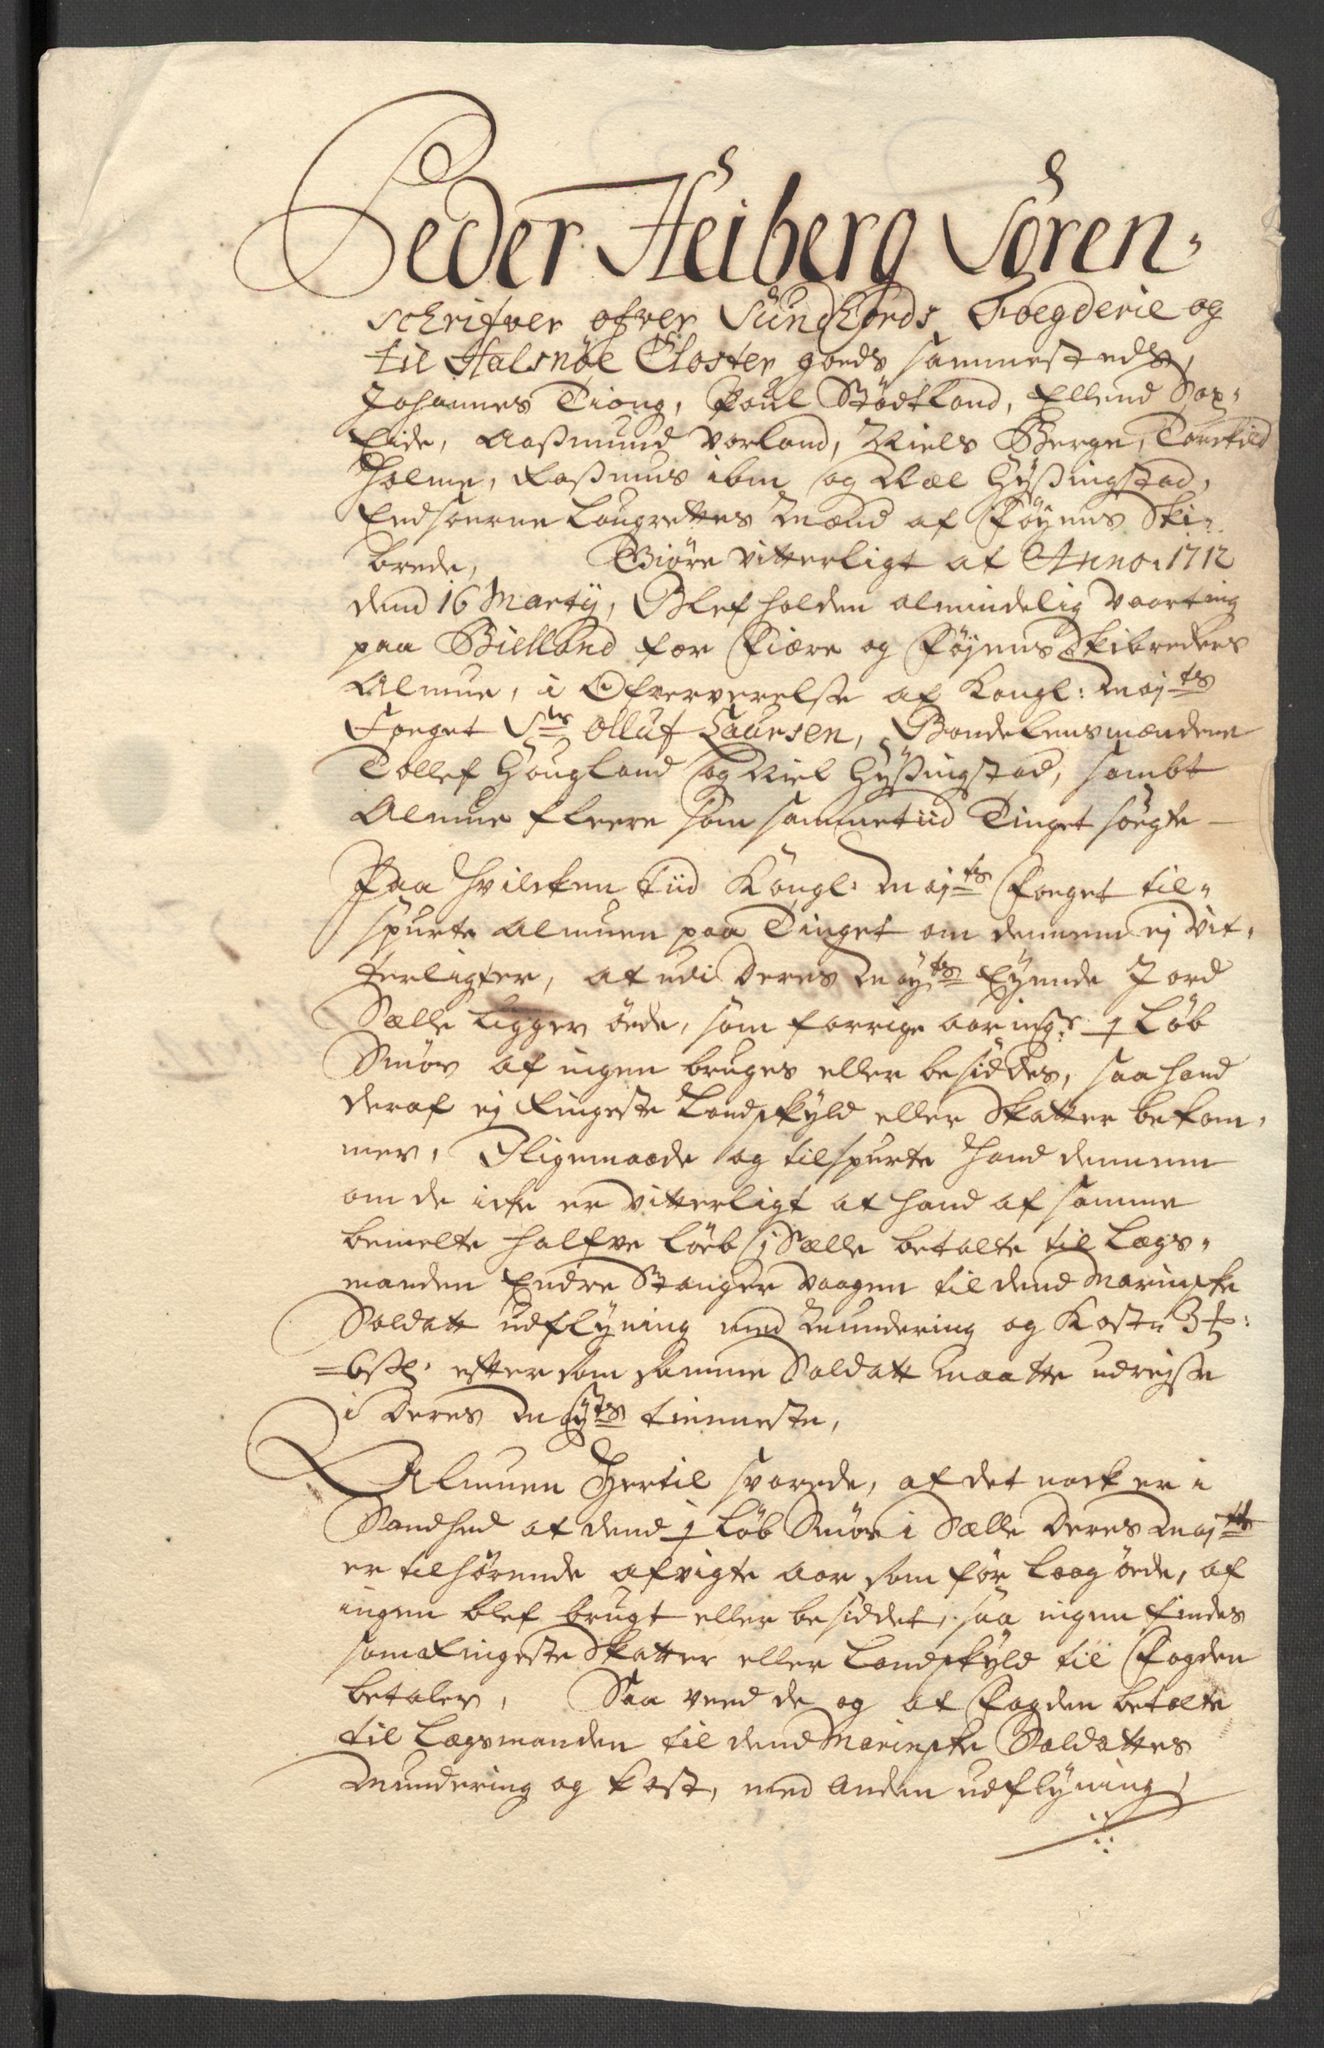 Peder Heiberg Soren-
schrifver ofver Sundhords Foegderie og
til Halsnøe Closter goeds sammestedtz,
Johannes Tiong, Poul Stødtland, Ellend Sax-
Eide, Aaßmund Vorland, Niels Berge, Torkild
Holme, Raßmus ibm og Niel Hyßingstad,
Eedsoerne Laugrettes Mænd af Føyens Ski-
brede, Giøre Vitterligt at Anno 1712
dend 16 Marty, Blef holden almindelig Vaarting
paa Bielland for Fiære og Føyens Skibreders
Almue, i Ofververelse af Kongl: Maj ts
Foeget Sr Olluf Laursen, Bondelensmændene
Tollef Hougland og Niel Hyßingstad, sambt
Almue fleere som sammetiid Tinget søgte
Paa hvilcken tiid Kongl: Maj ts Foeget til-
spurte almuen paa Tinget om dennem ej vit-
terligter, at udi Deres May ts Eyende Jord
Sælle Ligger øede, som forrige aar ½ Løb
Smør af ingen bruges eller besiddes, saa hand
deraf ej Ringeste Landskyld eller Skatter bekom-
mer, Iligemaade og tilspurte hand dennem
om de icke er vitterligt at hand af samme
bemelte halfve Løeb i Sælle betalte til Lægs-
manden Endre Stanger Vaagen til dend Marinske
Soldatt udflyning med Mundering og Kost 3
6 efter som samme Soldatt maatte udrejse
i Deres May ts tienneste,
Almuen hertil svarede, at det nock er i
Sandhed at dend ½ Løb Smør i Sælle Deres Maj tt
er tilhørende afvigte aar som før Laag øede, af
ingen blef brugt eller besiddet, saa ingen findes
som Ringeste Skatter eller Landskyld til Fogden
betaler, Saa veed de og at Fogden betalte
til Lægsmanden til dend Marinske Soldattes
Mundering og kost, med anden udflyning,